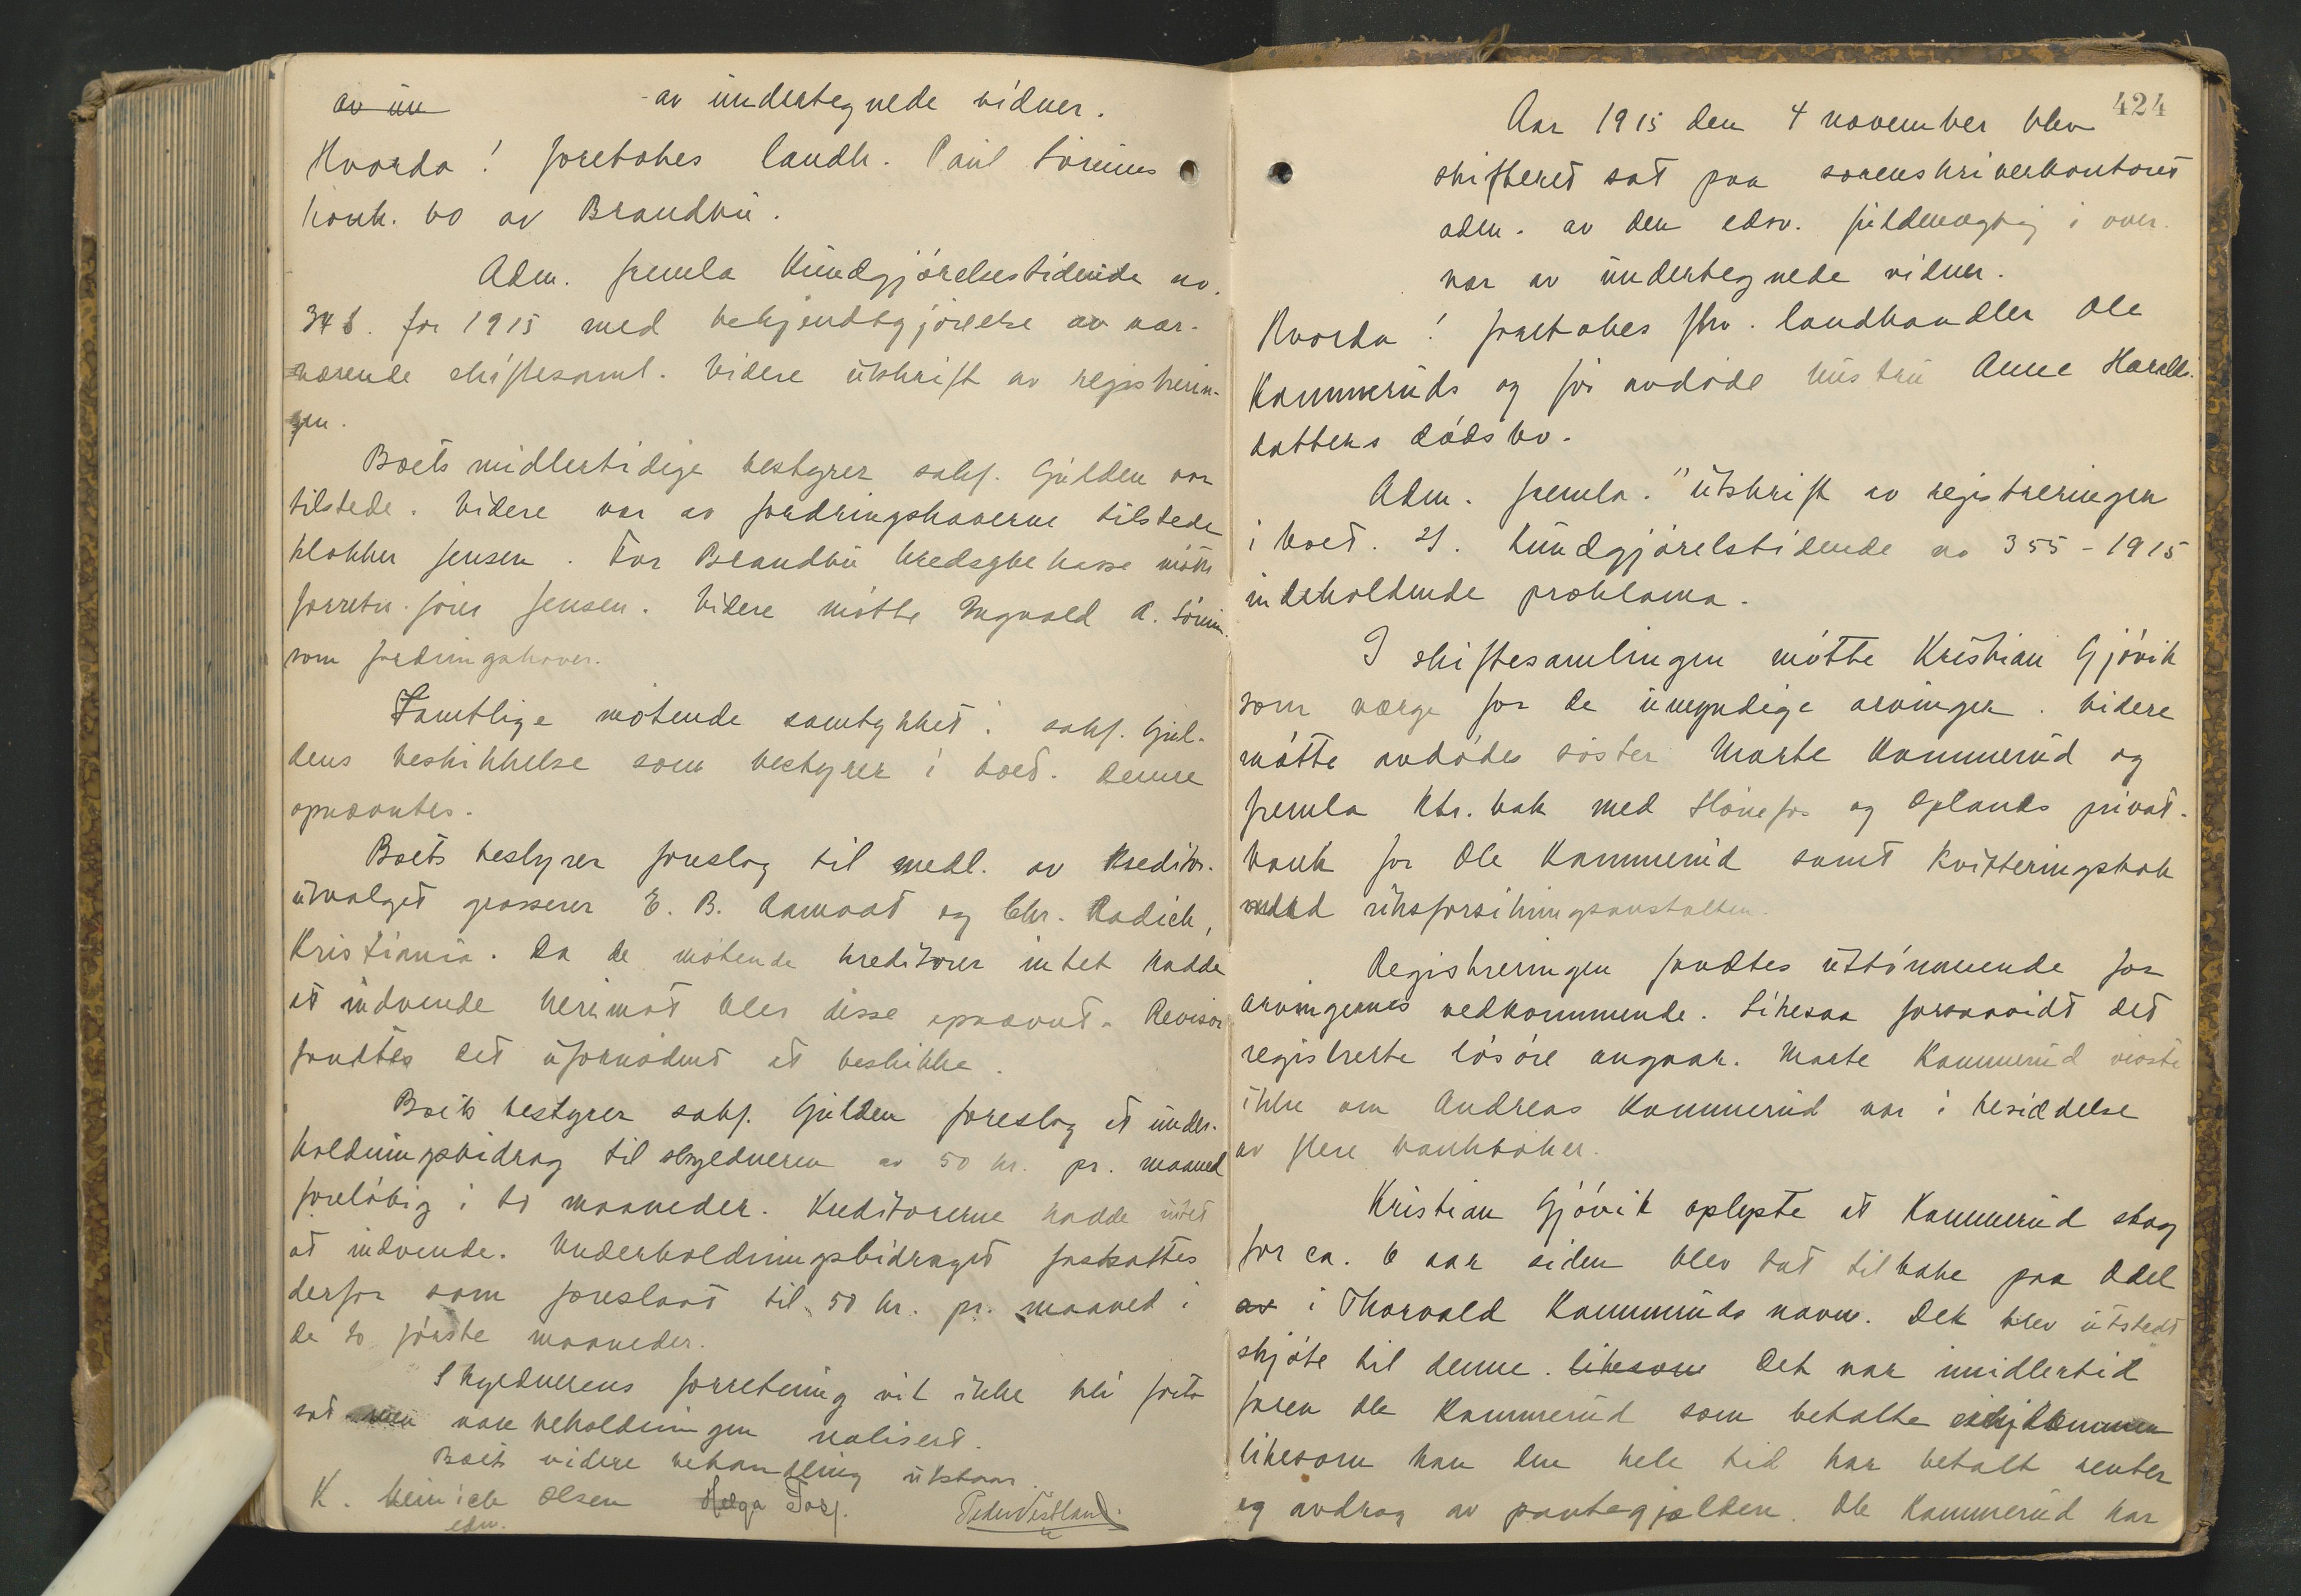 av un av undertegnede vidner.
Hvorda! foretokes landh. Paul Sörums
konk. bo av Brandbu.
Adm. fremla Kundgjörelsestidende no.
348. for 1915 med bekjendtgjörelse av nær-
værende skiftesaml. Videre utskrift av registrerin-
gen.
Boets midlertidige bestyrer sakf. Gulden var
tilstede. Videre var av fordringshaverne tilstede
klokker Jensen. For Brandbu kredsykekasse mötte
forretn.förer Jensen. Videre mötte Ingvald A. Sörum
som fordringshaver.
Samtlige mötende samtykket i sakf. Gul-
dens beskikkelse som bestyrer i boet. Denne
opnævntes.
Boets bestyrer foreslog til medl. av kreditor-
utvalget grosserer E. B. Aamodt og Chr. Radich,
Kristiania. Da de mötende kreditorer intet hadde
at indvende herimot blev disse opnævnt. Revisor
fandtes det ufornödent at beskikke.
Boets bestyrer sakf. Gulden foreslog et under-
holdningsbidrag til skyldneren av 50 kr. pr. maaned
forelöbig i to maaneder. Kreditorerne hadde intet
at indvende. Underholdningsbidraget fastsattes
derfor som foreslaat til 50 kr. pr. maaned i
de to förste maaneder.
Skyldnerens forretning vil ikke bli fort-
sat men varebeholdningen realisert.
Boets videre behandling utstaar.
K. Heinrich Olsen Helga Torf. Peder Vestland.
edsv.
424
Aar 1915 den 4 november blev
skifteret sat paa sorenskriverkontoret
adm. av den edsv. fuldmægtig i over-
vær av undertegnede vidner.
Hvorda! foretokes fhv. landhandler Ole
Kammeruds og för avdöde hustru Anne Haralds-
datters dödsbo.
Adm. fremla. 1) utskrift av registreringen
i boet. 2). Kundgjörelstidende no 355-1915
indeholdende proklama.
I skiftesamlingen mötte Kristian Gjövik
som værge for de umyndige arvinger. Videre
mötte avdödes söster Marte Kammerud og
fremla ktr.bok med Hönefos og Oplands privat-
bank for Ole Kammerud samt kvitteringsbok
med riksforsikringsanstalten.
Registreringen fandtes uttömmende for
arvingernes vedkommende. Likesaa forsaavidt det
registrerte lösöre angaar. Marte Kammerud visste
ikke om Andreas Kammerud var i besiddelse
av flere bankböker.
Kristian Gjövik oplyste at Kammerud skog
for ca. 6 aar siden blev tat tilbake paa odel
av i Thorvald Kammeruds navn. Det blev utstedt
skjöte til denne. likesom Det var imidlertid
faren Ole Kammerud som betalte eiendommen
likesom han den hele tid har betalt renter
og avdrag av pantegjælden. Ole Kammerud har